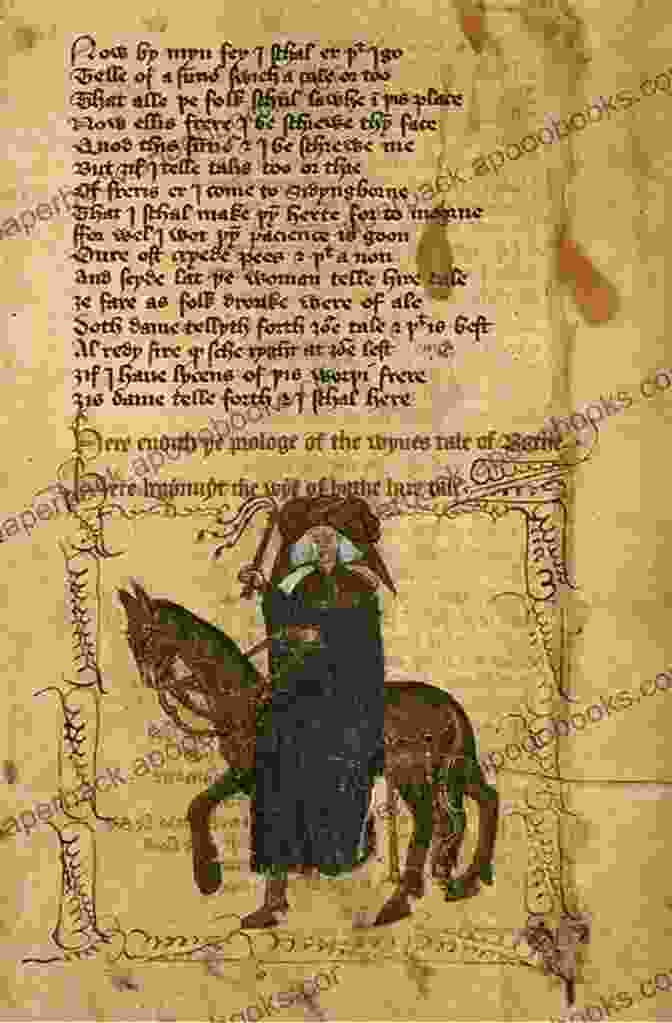 Now by myn fey I schal er þt I go
Telle of a swich a tale or too
That alle þe folk schul lawhe ī þis place
Now ellis frere I be schrewe thy face
Quod this & I be schrewe me
But ȝif I telle talis too or thre
Of freris er I come to Sydyngborne
That I schal make þȳ herte for to morne
ffor wel I wot þȳ pacience is goon
Oure ost cryede pees & þt a non
And seyde lat þe woman telle hire tale
ȝe fare as folk dronke were of ale
Doth dame tellyth forth tale & þt is best
Al redy sire sche ryght lest
ȝif I haue lycens of þis frere
ȝis dame telle forth & I schal here
Here endyth þe prologe of the wyues tale of Bathe
Here begynnyt the wyf of bathe hire tale
paperback.apooobooks.com